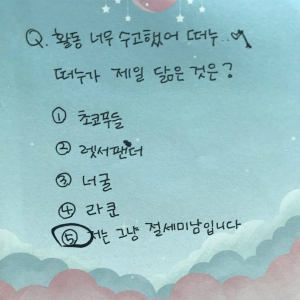 Q. 활동 너무 수고했어 떠누..
떠누가 제일 닮은 것은?
① 초코푸들
② 렛서팬더
③ 너굴
④ 라쿤
⑤ 저는 그냥 절세미남입니다